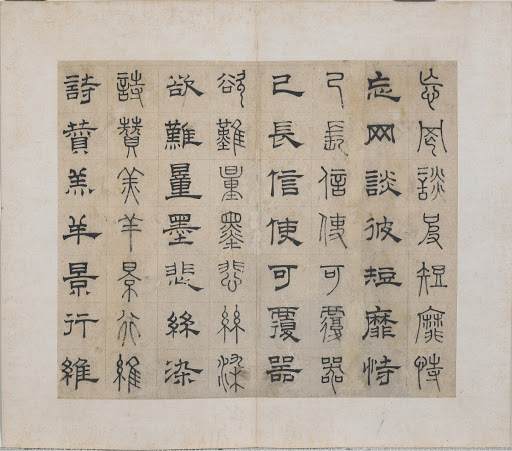 忘网談彼短靡恃
忘网談彼短靡恃
己長信使可覆器
己長信使可覆器
欲難量墨悲絲染
欲難量墨悲絲染
詩贊羔羊景行維
詩贊羔羊景行維